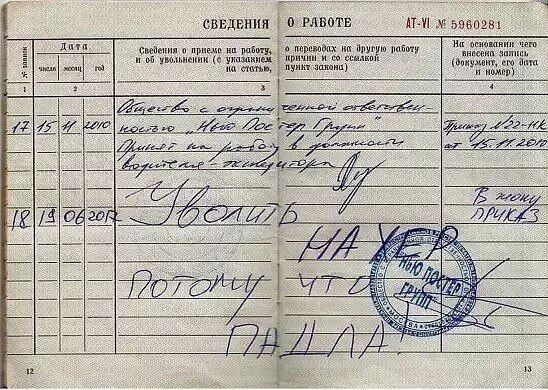 СВЕДЕНИЯ О РАБОТЕ АТ-VI № 5960281
№ записи
Дата
число месяц год
Сведения о приеме на работу, о переводах на другую работу
и об увольнении (с указанием причин и со ссылкой
на статью, пункт закона)
На основании чего
внесена запись
(документ, его дата
и номер)
1 2 3 4
Общество с ограниченной ответствен-
ностью "Нью Постер Групп"
17 15 11 2010 Принят на работу в должности
водителя-экспедитора
Приказ №22-НК
от 15.11.2010
18 19 06 2017 УВОЛИТЬ
НАХЕР
В жопу
ПРИКАЗ
ПОТОМУ ЧТО
ПАДЛА!
НЬЮ ПОСТЕР
ГРУПП
МОСКВА
12 13